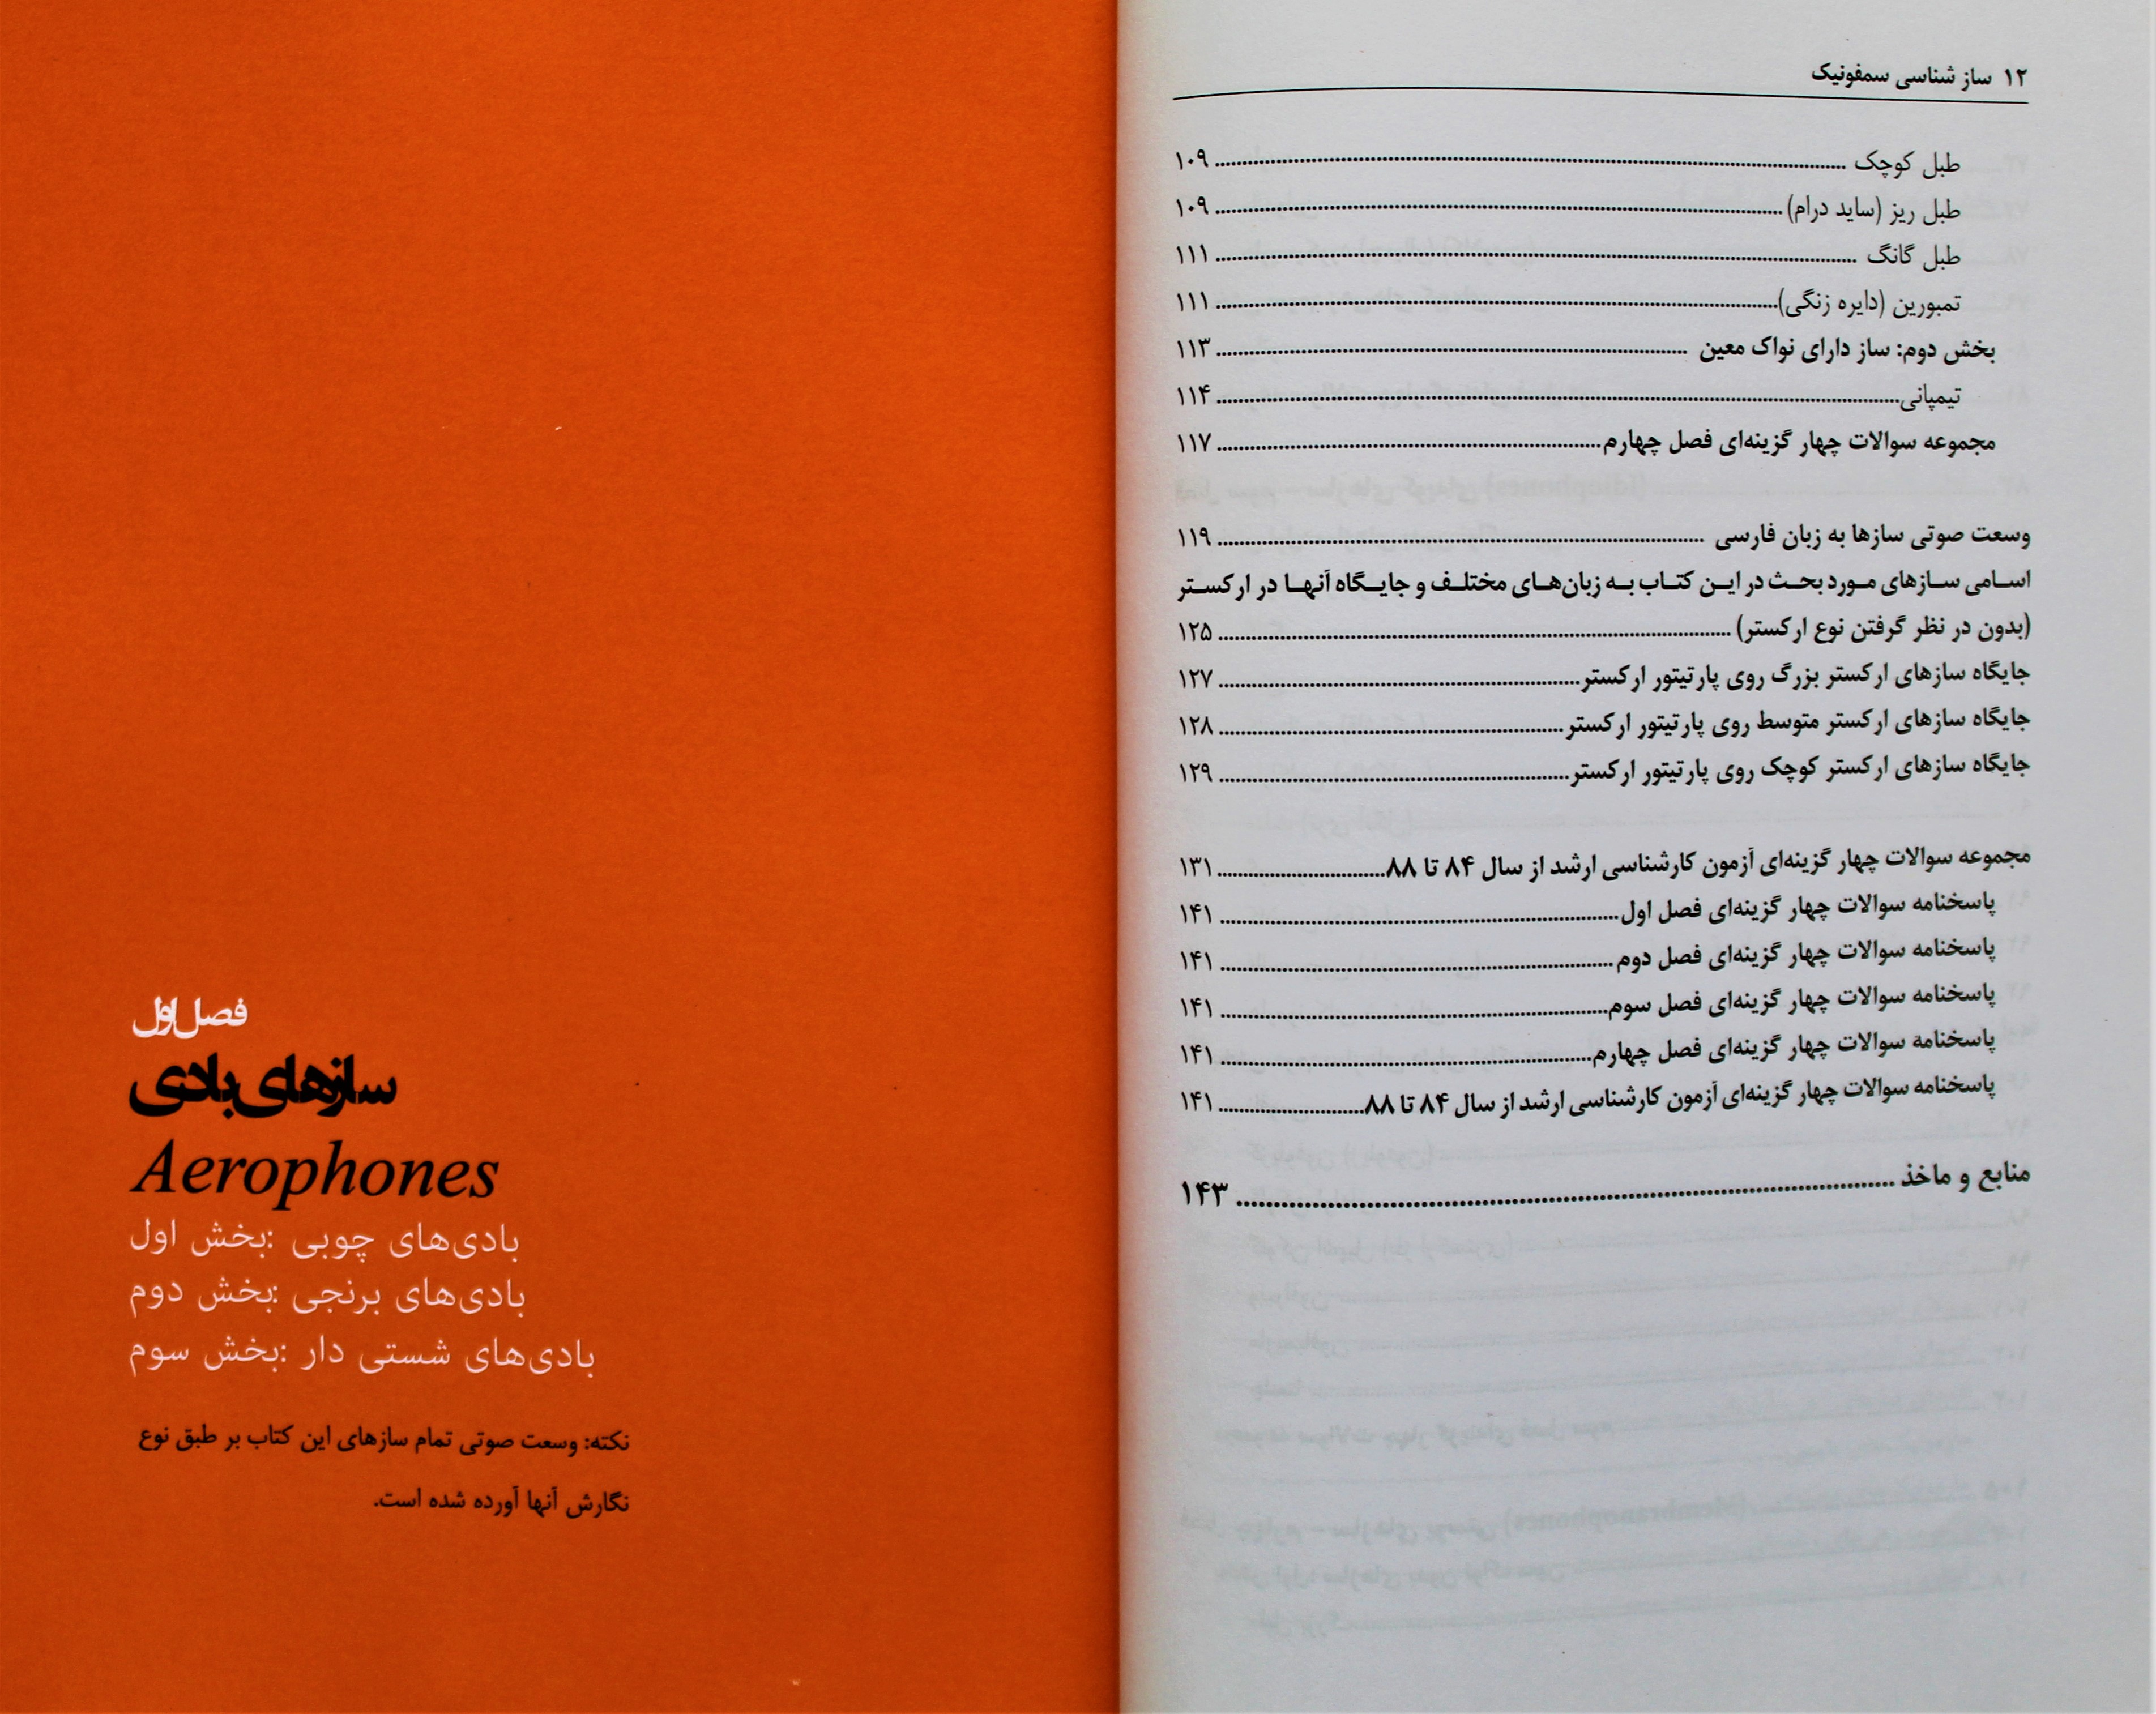 ۱۲ ساز شناسی سمفونیک
طبل کوچک ........ ۱۰۹
طبل ریز (ساید درام) ........ ۱۰۹
طبل گانگ ........ ۱۱۱
تمبورین (دایره زنگی) ........ ۱۱۱
بخش دوم: ساز دارای نواک معین ........ ۱۱۳
تیمپانی ........ ۱۱۴
مجموعه سوالات چهار گزینه‌ای فصل چهارم ........ ۱۱۷
وسعت صوتی سازها به زبان فارسی ........ ۱۱۹
اسامی سازهای مورد بحث در این کتاب به زبان‌های مختلف و جایگاه آنها در ارکستر
(بدون در نظر گرفتن نوع ارکستر) ........ ۱۲۵
جایگاه سازهای ارکستر بزرگ روی پارتیتور ارکستر ........ ۱۲۷
جایگاه سازهای ارکستر متوسط روی پارتیتور ارکستر ........ ۱۲۸
جایگاه سازهای ارکستر کوچک روی پارتیتور ارکستر ........ ۱۲۹
مجموعه سوالات چهار گزینه‌ای آزمون کارشناسی ارشد از سال ۸۴ تا ۸۸ ........ ۱۳۱
پاسخنامه سوالات چهار گزینه‌ای فصل اول ........ ۱۴۱
پاسخنامه سوالات چهار گزینه‌ای فصل دوم ........ ۱۴۱
پاسخنامه سوالات چهار گزینه‌ای فصل سوم ........ ۱۴۱
پاسخنامه سوالات چهار گزینه‌ای فصل چهارم ........ ۱۴۱
پاسخنامه سوالات چهار گزینه‌ای آزمون کارشناسی ارشد از سال ۸۴ تا ۸۸ ........ ۱۴۱
منابع و ماخذ ........ ۱۴۳
فصل اول
سازهای بادی
Aerophones
بادی‌های چوبی :بخش اول
بادی‌های برنجی :بخش دوم
بادی‌های شستی دار :بخش سوم
نکته: وسعت صوتی تمام سازهای این کتاب بر طبق نوع
نگارش آنها آورده شده است.